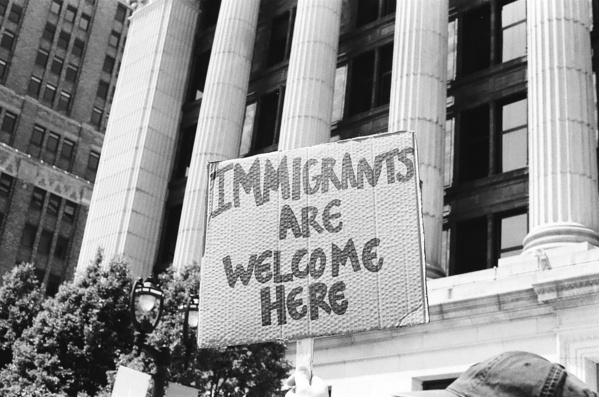 IMMIGRANTS
ARE
WELCOME
HERE